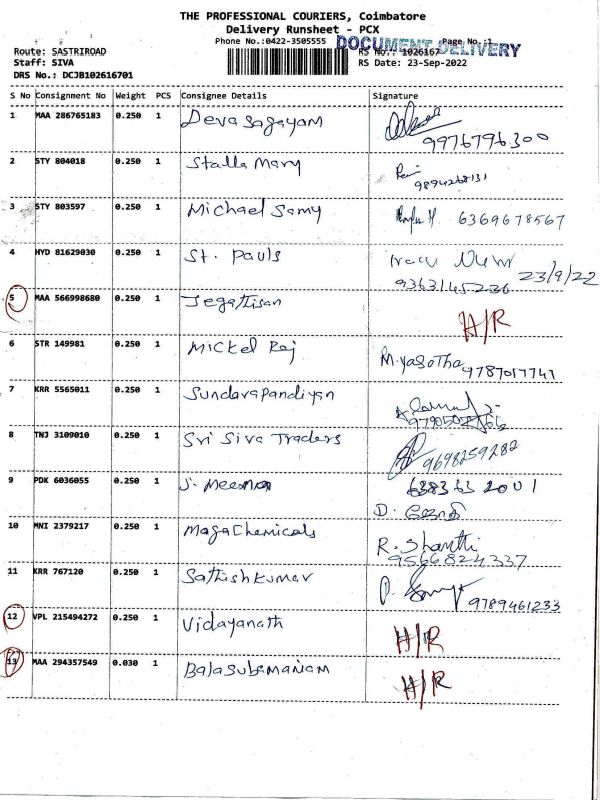 THE PROFESSIONAL COURIERS, Coimbatore
Delivery Runsheet - PCX
Phone No.:0422-3505555 Page No.:1
DOCUMENT DELIVERY
Route: SASTRIROAD RS No.: 1026167
Staff: SIVA RS Date: 23-Sep-2022
DRS No.: DCJB102616701
S No Consignment No Weight PCS Consignee Details Signature
1 MAA 286765183 0.250 1 Deva sagayam
9976796300
2 STY 804018 0.250 1 Stalla Mary
9894268131
3 STY 803597 0.250 1 Michael Samy 6369678567
4 HYD 81629030 0.250 1 St. Pauls
9363145236 23/9/22
5 MAA 566998680 0.250 1 Jegathisan
H/R
6 STR 149981 0.250 1 Mickel Raj M.yasotha 9787017741
7 KRR 5565011 0.250 1 Sundarapandiyan
8 TNJ 3109010 0.250 1 Sri Siva Traders
9698259282
9 PDK 6036055 0.250 1 J. Meena 638363 2001
D.
10 MNI 2379217 0.250 1 Maga Chemicals R. Shanthi
9566824337
11 KRR 767120 0.250 1 Sathish kumar
9789461233
12 VPL 215494272 0.250 1 Vidayanath
H/R
13 MAA 294357549 0.030 1 Balasubsmaniam
H/R